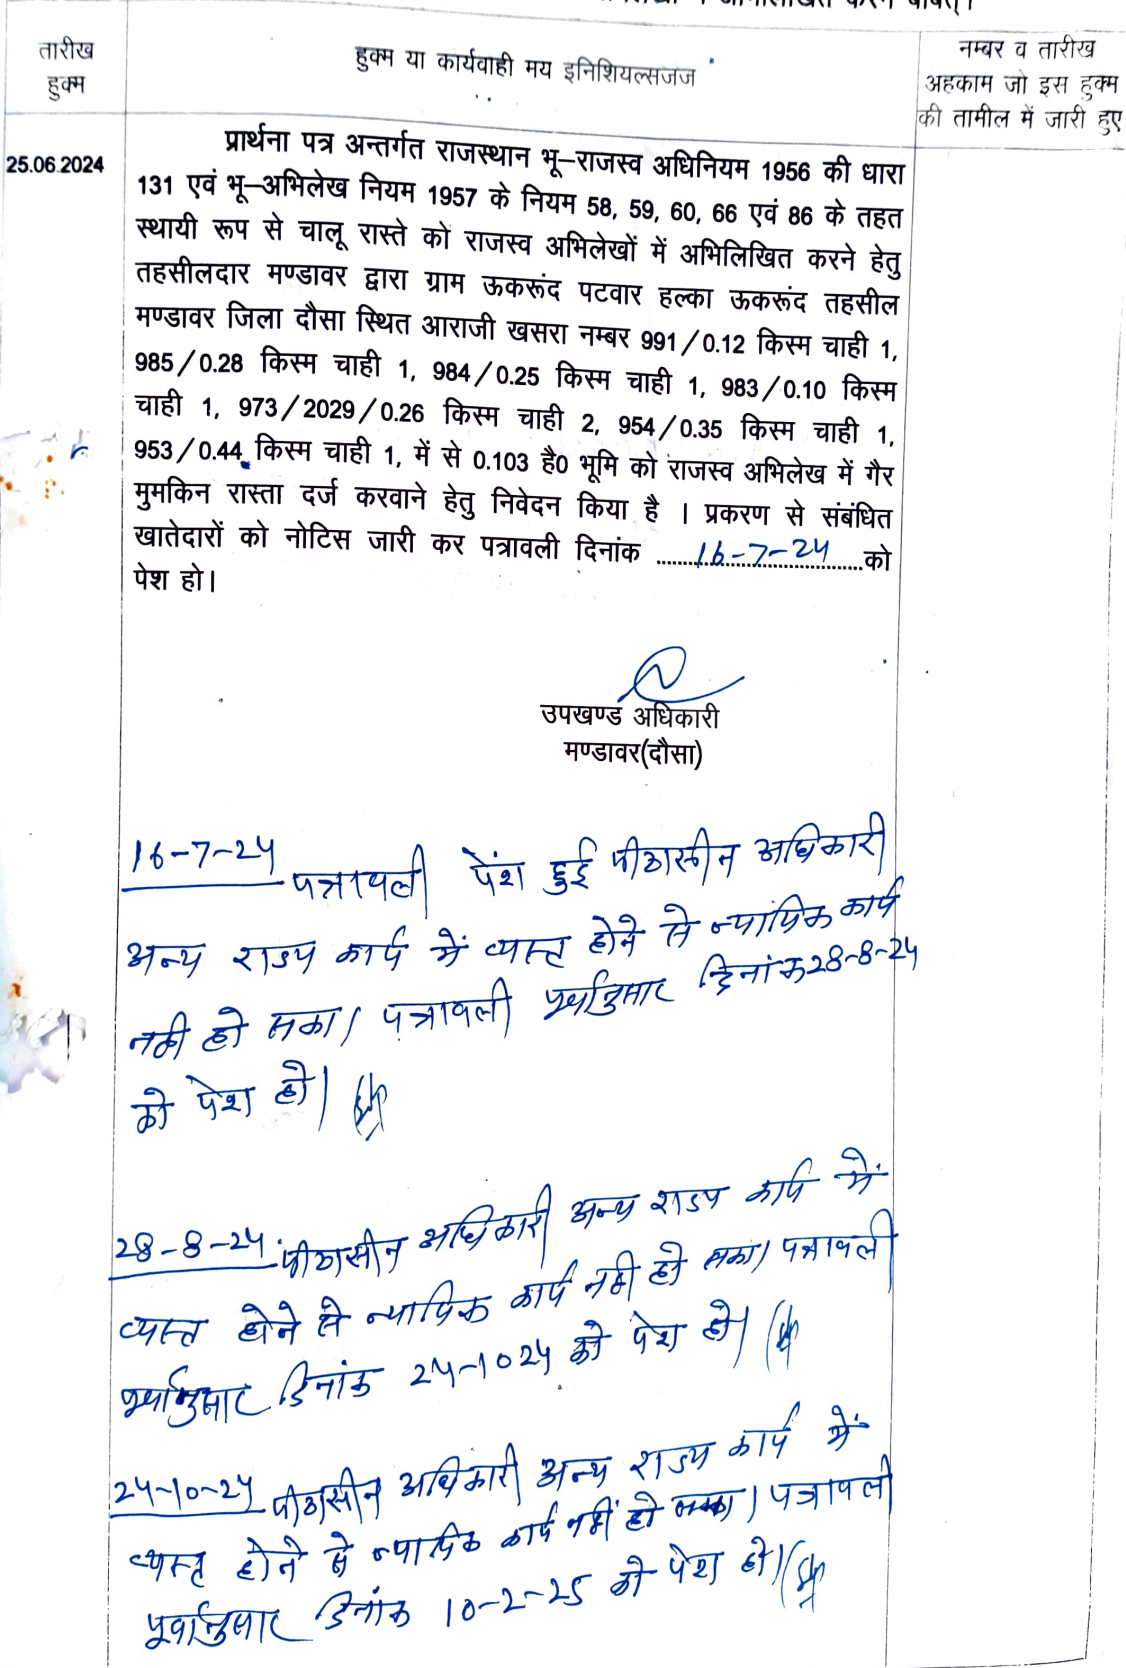 अभिलिखित करने बाबत्।
तारीख
हुक्म
हुक्म या कार्यवाही मय इनिशियल्सजज
नम्बर व तारीख
अहकाम जो इस हुक्म
की तामील में जारी हुए
25.06.2024
प्रार्थना पत्र अन्तर्गत राजस्थान भू–राजस्व अधिनियम 1956 की धारा
131 एवं भू–अभिलेख नियम 1957 के नियम 58, 59, 60, 66 एवं 86 के तहत
स्थायी रूप से चालू रास्ते को राजस्व अभिलेखों में अभिलिखित करने हेतु
तहसीलदार मण्डावर द्वारा ग्राम ऊकरूंद पटवार हल्का ऊकरूंद तहसील
मण्डावर जिला दौसा स्थित आराजी खसरा नम्बर 991/0.12 किस्म चाही 1,
985/0.28 किस्म चाही 1, 984/0.25 किस्म चाही 1, 983/0.10 किस्म
चाही 1, 973/2029/0.26 किस्म चाही 2, 954/0.35 किस्म चाही 1,
953/0.44 किस्म चाही 1, में से 0.103 है0 भूमि को राजस्व अभिलेख में गैर
मुमकिन रास्ता दर्ज करवाने हेतु निवेदन किया है । प्रकरण से संबंधित
खातेदारों को नोटिस जारी कर पत्रावली दिनांक ....16-7-24....को
पेश हो।
उपखण्ड अधिकारी
मण्डावर(दौसा)
16-7-24 पत्रावली पेंश हुई पीठासीन अधिकारी
अन्य राज्य कार्य में व्यस्त होने से न्यायिक कार्य
नही हो सका। पत्रावली पूर्वानुसार दिनांक 28-8-24
को पेश हो।
28-8-24 पीठासीन अधिकारी अन्य राज्य कार्य में
व्यस्त होने से न्यायिक कार्य नही हो सका। पत्रावली
पूर्वानुसार दिनांक 24-1024 को पेश हो।
24-10-24 पीठासीन अधिकारी अन्य राज्य कार्य में
व्यस्त होने से न्यायिक कार्य नहीं हो सका। पत्रावली
पूर्वानुसार दिनांक 10-2-25 को पेश हो।